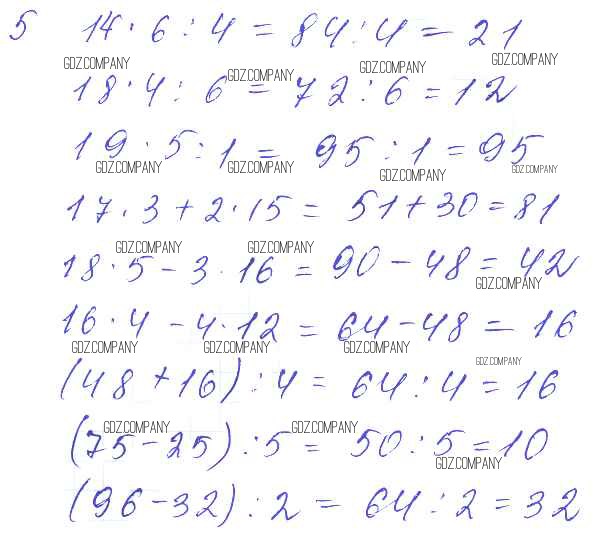 5 14 · 6 : 4 = 84 : 4 = 21
GDZ.COMPANY GDZ.COMPANY GDZ.COMPANY GDZ.COMPANY
18 · 4 : 6 = 72 : 6 = 12
19 · 5 : 1 = 95 : 1 = 95
GDZ.COMPANY GDZ.COMPANY GDZ.COMPANY GDZ.COMPANY
17 · 3 + 2 · 15 = 51 + 30 = 81
GDZ.COMPANY GDZ.COMPANY
18 · 5 - 3 · 16 = 90 - 48 = 42
GDZ.COMPANY
16 · 4 - 4 · 12 = 64 - 48 = 16
GDZ.COMPANY GDZ.COMPANY GDZ.COMPANY GDZ.COMPANY
(48 + 16) : 4 = 64 : 4 = 16
GDZ.COMPANY GDZ.COMPANY
(75 - 25) : 5 = 50 : 5 = 10
GDZ.COMPANY
(96 - 32) : 2 = 64 : 2 = 32